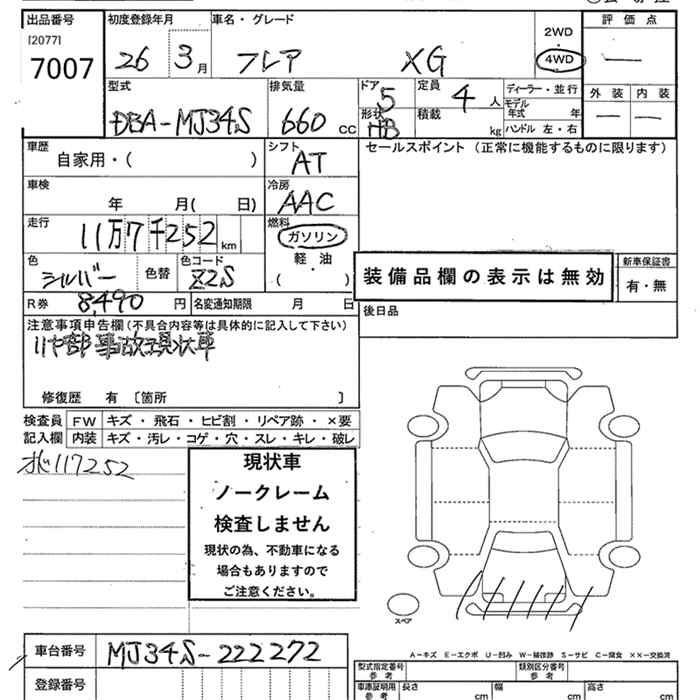 出品番号 初度登録年月 車名・グレード 評価点
[2077] 7007 26 3月 フレア XG 2WD 4WD —
型式 排気量 ドア 定員 ディーラー・並行 外装 内装
DBA-MJ34S 660 cc 5 4人 モデル年式 年 — —
形状 HB 積載 kg ハンドル 左・右
車歴 シフト セールスポイント (正常に機能するものに限ります)
自家用・( ) AT
車検 冷房
年 月( 日) AAC
走行 燃料
11万7千252 km ガソリン
軽油
色 色コード ( ・ )
シルバー 色替 Z2S 装備品欄の表示は無効 新車保証書
有・無
R券 8,490円 名変通知期限 月 日 後日品
注意事項申告欄 (不具合内容等は具体的に記入して下さい)
事故現状車
修復歴 有 〔箇所 〕
検査員 FW キズ・飛石・ヒビ割・リペア跡・×要
記入欄 内装 キズ・汚レ・コゲ・穴・スレ・キレ・破レ
117252
現状車
ノークレーム
検査しません
現状の為、不動車になる
場合もありますので
ご注意ください。
スペア
A-キズ E-エクボ U-凹み W-補修跡 S-サビ C-腐食 ××-交換済
車台番号 MJ34S-222272
型式指定番号 参考 類別区分番号 参考
登録番号 車庫証明用 参考 長さ cm 幅 cm 高さ cm